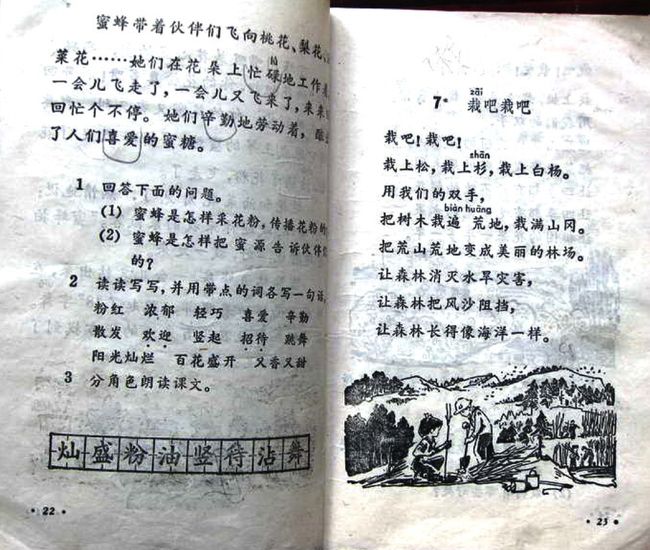 蜜蜂带着伙伴们飞向桃花、梨花、
菜花……她们在花朵上忙碌地工作着
lù
一会儿飞走了，一会儿又飞来了，来来
回忙个不停。她们辛勤地劳动着，酿
了人们喜爱的蜜糖。
1 回答下面的问题。
(1) 蜜蜂是怎样采花粉，传播花粉的
(2) 蜜蜂是怎样把蜜源告诉伙伴们
的？
2 读读写写，并用带点的词各写一句话。
粉红 浓郁 轻巧 喜爱 辛勤
散发 欢迎 竖起 招待 跳舞
阳光灿烂 百花盛开 又香又甜
3 分角色朗读课文。
灿盛粉油竖待沾舞
·22·
zāi
7* 栽吧栽吧
栽吧！栽吧！
shān
栽上松，栽上杉，栽上白杨。
用我们的双手，
biàn huāng
把树木栽遍荒地，栽满山冈。
把荒山荒地变成美丽的林场。
让森林消灭水旱灾害，
让森林把风沙阻挡，
让森林长得像海洋一样。
·23·